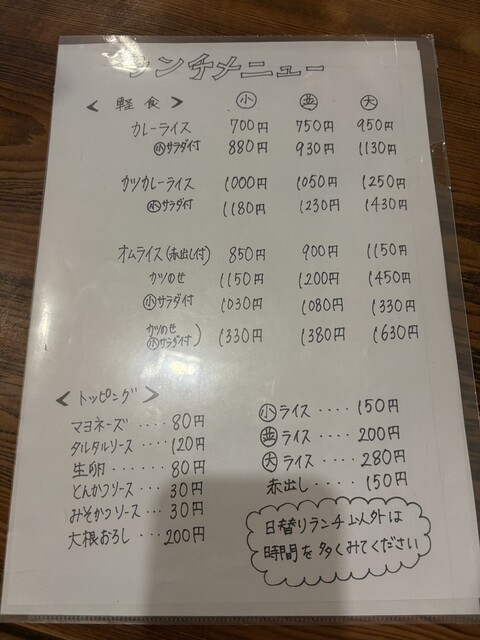 ランチメニュー
＜ 軽食 ＞ 小 並 大
カレーライス 700円 750円 950円
小サラダ付 880円 930円 1130円
カツカレーライス 1000円 1050円 1250円
小サラダ付 1180円 1230円 1430円
オムライス(赤出し付) 850円 900円 1150円
カツのせ 1150円 1200円 1450円
小サラダ付 1030円 1080円 1330円
カツのせ
小サラダ付 ) 1330円 1380円 1630円
＜ トッピング ＞
マヨネーズ ‥‥ 80円
タルタルソース ‥‥ 120円
生卵 ‥‥‥ 80円
とんかつソース ‥‥ 30円
みそかつソース ‥‥ 30円
大根おろし ‥‥ 200円
小ライス ‥‥ 150円
並ライス ‥‥ 200円
大ライス ‥‥ 280円
赤出し ‥‥ 150円
日替りランチ以外は
時間を多くみてください